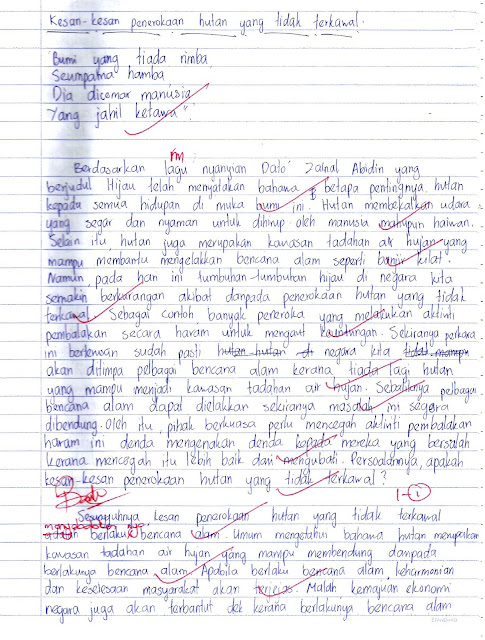 Kesan-kesan penerokaan hutan yang tidak terkawal.
"Bumi yang tiada rimba
Seumpama hamba
Dia dicemar manusia
Yang jahil ketawa".
Berdasarkan lagu nyanyian Dato' Zainal Abidin yang
berjudul Hijau telah menyatakan bahawa betapa pentingnya hutan
kepada semua hidupan di muka bumi ini. Hutan membekalkan udara
yang segar dan nyaman untuk dihirup oleh manusia mahupun haiwan.
Selain itu, hutan juga merupakan kawasan tadahan air hujan yang
mampu membantu mengelakkan bencana alam seperti banjir kilat.
Namun, pada hari ini tumbuhan-tumbuhan hijau di negara kita
semakin berkurangan akibat daripada penerokaan hutan yang tidak
terkawal. Sebagai contoh banyak peneroka yang melakukan aktiviti
pembalakan secara haram untuk mengaut keuntungan. Sekiranya perkara
ini berlewan sudah pasti hutan-hutan di negara kita tidak mampu
akan ditimpa pelbagai bencana alam kerana tiada lagi hutan
yang mampu menjadi kawasan tadahan air hujan. Sebaliknya pelbagai
bencana alam dapat dielakkan sekiranya masalah ini segera
dibendung. Oleh itu pihak berkuasa perlu mencegah aktiviti pembalakan
haram ini denda mengenakan denda kepada mereka yang bersalah
kerana mencegah itu lebih baik dari mengubati. Persoalannya, apakah
kesan-kesan penerokaan hutan yang tidak terkawal?
1-1
Sesungguhnya kesan penerokaan hutan yang tidak terkawal
adalah berlaku bencana alam. Umum mengetahui bahawa hutan merupakan
kawasan tadahan air hujan yang mampu membendung daripada
berlakunya bencana alam. Apabila berlaku bencana alam, keharmonian
dan keselesaan masyarakat akan terjejas. Malah, kemajuan ekonomi
negara juga akan terbantut dek kerana berlakunya bencana alam